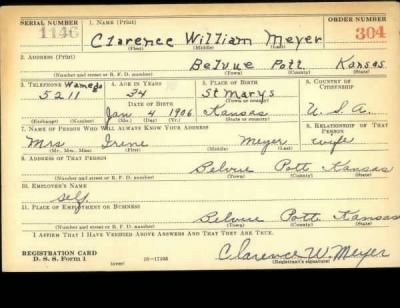 SERIAL NUMBER 1. NAME (Print) ORDER NUMBER
1146 Clarence William Meyer 304
(First) (Middle) (Last)
2. ADDRESS (Print)
Belvue Pott. Kansas
(Number and street or R. F. D. number) (Town) (County) (State)
3. TELEPHONE 4. AGE IN YEARS 5. PLACE OF BIRTH 6. COUNTRY OF CITIZENSHIP
Wamego
5211 34 St Marys
DATE OF BIRTH (Town or county)
Jan 4 1906 Kansas U.S.A.
(Exchange) (Number) (Mo.) (Day) (Yr.) (State or country)
7. NAME OF PERSON WHO WILL ALWAYS KNOW YOUR ADDRESS 8. RELATIONSHIP OF THAT PERSON
Mrs Irene Meyer wife
(Mr., Mrs., Miss) (First) (Middle) (Last)
9. ADDRESS OF THAT PERSON
Belvue Pott Kansas
(Number and street or R. F. D. number) (Town) (County) (State)
10. EMPLOYER'S NAME
self
11. PLACE OF EMPLOYMENT OR BUSINESS
Belvue Pott Kansas
(Number and street or R. F. D. number) (Town) (County) (State)
I AFFIRM THAT I HAVE VERIFIED ABOVE ANSWERS AND THAT THEY ARE TRUE.
REGISTRATION CARD Clarence W. Meyer
D. S. S. Form 1 (over) (Registrant's signature)